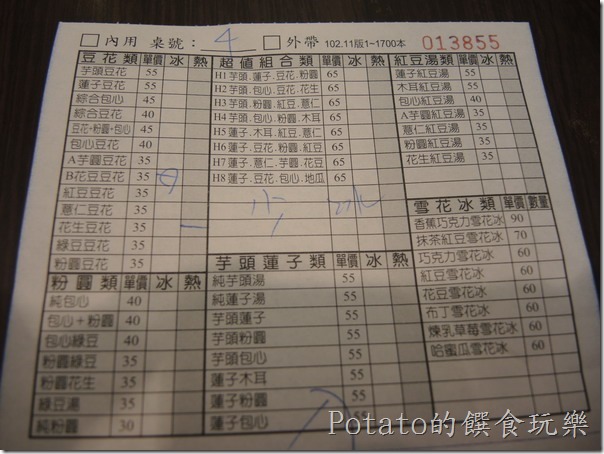 內用 桌號： 4 外帶 102.11版1~1700本 013855
豆花類 單價 冰 熱
芋頭豆花 55
蓮子豆花 55
綜合包心 45
綜合豆花 40
豆花+粉圓+包心 45
包心豆花 40
A芋圓豆花 35
B花豆豆花 35
紅豆豆花 35
薏仁豆花 35
花生豆花 35
綠豆豆花 35
粉圓豆花 35
粉圓類 單價 冰 熱
純包心 40
包心+粉圓 40
包心綠豆 40
粉圓綠豆 35
粉圓花生 35
綠豆湯 35
純粉圓 30
超值組合類 單價 冰 熱
H1芋頭.蓮子.豆花.粉圓 65
H2芋頭.包心.豆花.花生 65
H3芋頭.粉圓.紅豆.薏仁 65
H4芋頭.包心.粉圓.木耳 65
H5蓮子.木耳.紅豆.薏仁 65
H6蓮子.豆花.粉圓.紅豆 65
H7蓮子.薏仁.芋圓.花豆 65
H8蓮子.豆花.包心.地瓜 65
冰
芋頭蓮子類 單價 冰 熱
純芋頭湯 55
純蓮子湯 55
芋頭蓮子 55
芋頭粉圓 55
芋頭包心 55
蓮子木耳 55
蓮子粉圓 55
蓮子包心 55
紅豆湯類 單價 冰 熱
蓮子紅豆湯 55
木耳紅豆湯 55
包心紅豆湯 40
A芋圓紅豆湯 35
薏仁紅豆湯 35
粉圓紅豆湯 35
花生紅豆湯 35
雪花冰類 單價 數量
香蕉巧克力雪花冰 90
抹茶紅豆雪花冰 70
巧克力雪花冰 60
紅豆雪花冰 60
花豆雪花冰 60
布丁雪花冰 60
煉乳草莓雪花冰 60
哈蜜瓜雪花冰 60
Potato的饌食玩樂